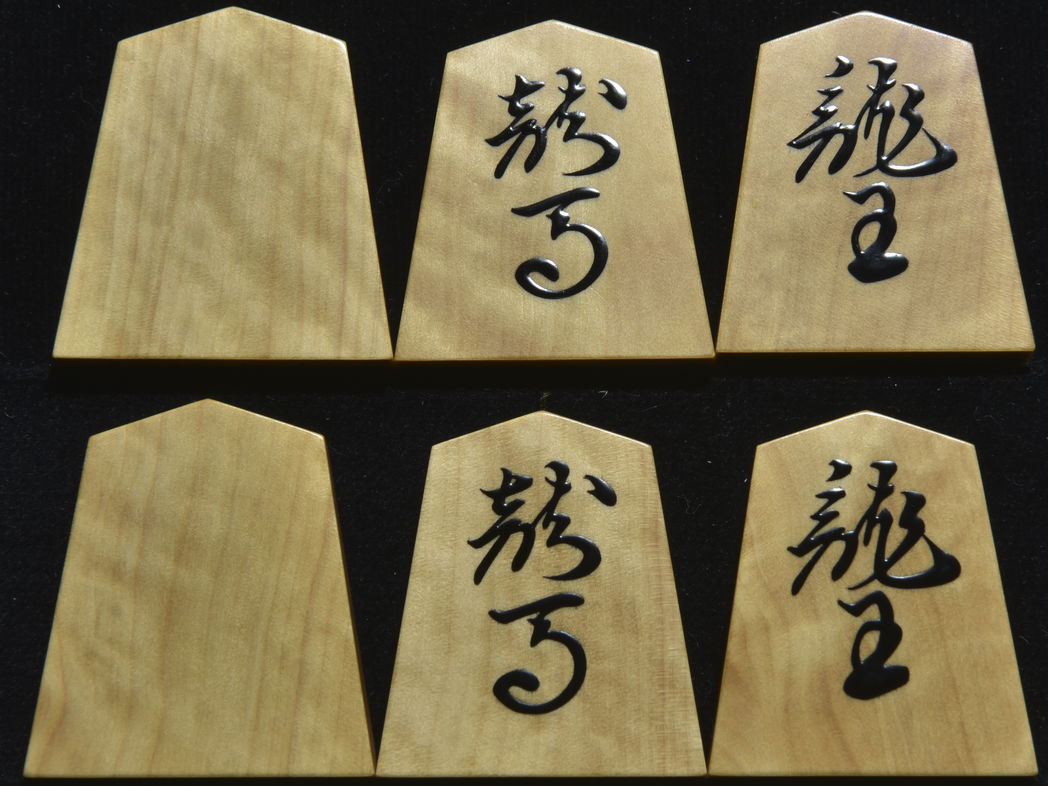 龍馬
龍王
龍馬
龍王